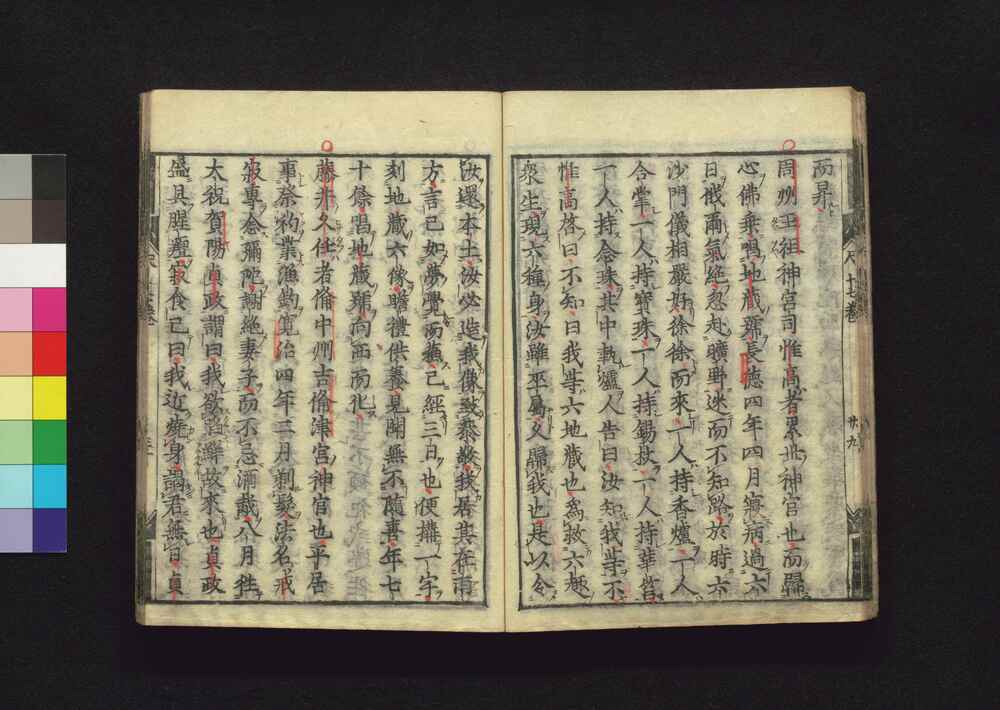 而昇
周州玉祖神宮司惟高者累世神官也而歸
心佛乗唱地藏號長德四年四月寢病過六
日俄爾氣絶忽赴曠野迷而不知路於時六
沙門儀相嚴好徐徐而來一人持香爐一人
合掌一人持寶珠一人持錫杖一人持華筥
一人持念珠其中執爐人告曰汝知我等不
惟高啓曰不知曰我等六地藏也爲救六趣
衆生現六種身汝雖巫屬久歸我也是以令
汝還本土汝必造我像致恭敬我居其在南
方言已如夢覺而蘇已經三日也便構一宇
刻地藏六像瞻禮供養見聞無不隨喜年七
十餘唱地藏號向西而化
藤井久任者備中州吉備津宮神官也平居
事祭祀業漁釣寬治四年二月剃髮法名戒
寂專念彌陀謝絶妻子而不忌酒截八月往
太祝賀陽貞政謂曰我欲飽鮮故來也貞政
盛具腥羶寂食已曰我近燒身謁君無日貞
尺十卷
廿九